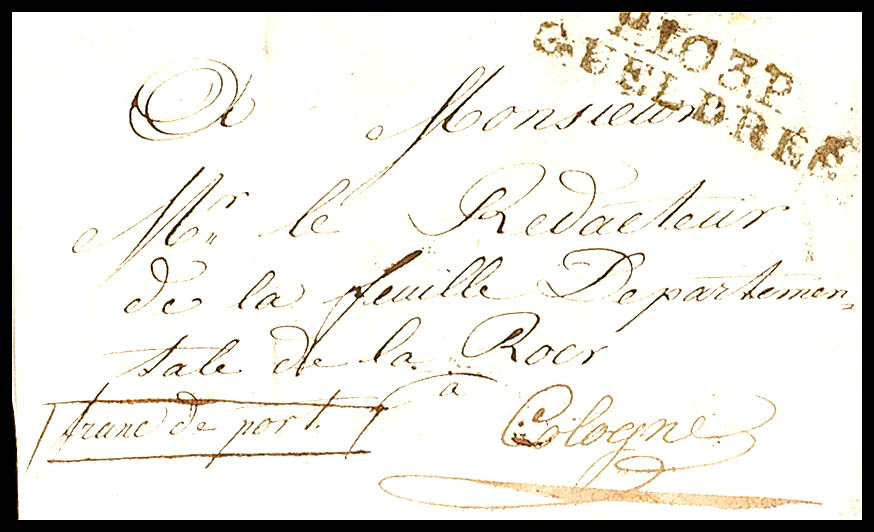 P103P
GUELDRES
A Monsieur
Mr le Redacteur
de la feuille Departemen=
tale de la Roer
franc de port.
a Cologne